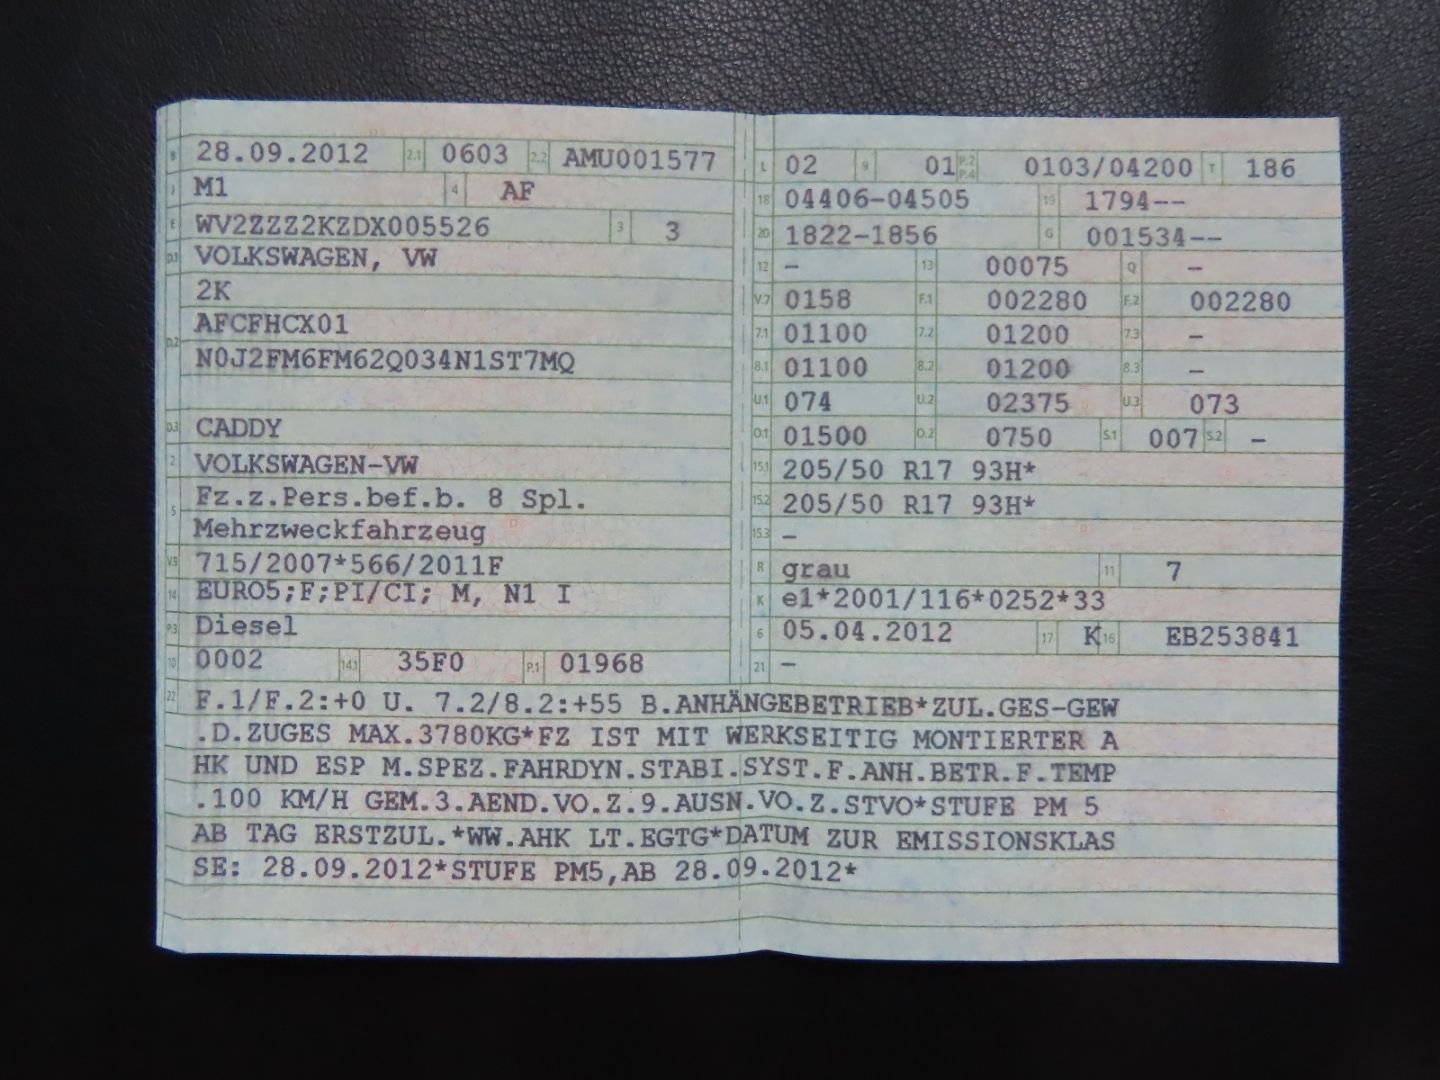 B 28.09.2012 2.1 0603 2.2 AMU001577
J M1 4 AF
E WV2ZZZ2KZDX005526 3 3
D.1 VOLKSWAGEN, VW
2K
D.2 AFCFHCX01
N0J2FM6FM62Q034N1ST7MQ
D.3 CADDY
2 VOLKSWAGEN-VW
5 Fz.z.Pers.bef.b. 8 Spl.
Mehrzweckfahrzeug
V.9 715/2007*566/2011F
14 EURO5;F;PI/CI; M, N1 I
P.3 Diesel
10 0002 14.1 35F0 P.1 01968
L 02 9 01 P.2 P.4 0103/04200 T 186
18 04406-04505 19 1794--
20 1822-1856 G 001534--
12 - 13 00075 Q -
V.7 0158 F.1 002280 F.2 002280
7.1 01100 7.2 01200 7.3 -
8.1 01100 8.2 01200 8.3 -
U.1 074 U.2 02375 U.3 073
O.1 01500 O.2 0750 S.1 007 S.2 -
15.1 205/50 R17 93H*
15.2 205/50 R17 93H*
15.3 -
R grau 11 7
K e1*2001/116*0252*33
6 05.04.2012 17 K 16 EB253841
21 -
22 F.1/F.2:+0 U. 7.2/8.2:+55 B.ANHÄNGEBETRIEB*ZUL.GES-GEW
.D.ZUGES MAX.3780KG*FZ IST MIT WERKSEITIG MONTIERTER A
HK UND ESP M.SPEZ.FAHRDYN.STABI.SYST.F.ANH.BETR.F.TEMP
.100 KM/H GEM.3.AEND.VO.Z.9.AUSN.VO.Z.STVO*STUFE PM 5
AB TAG ERSTZUL.*WW.AHK LT.EGTG*DATUM ZUR EMISSIONSKLAS
SE: 28.09.2012*STUFE PM5,AB 28.09.2012*